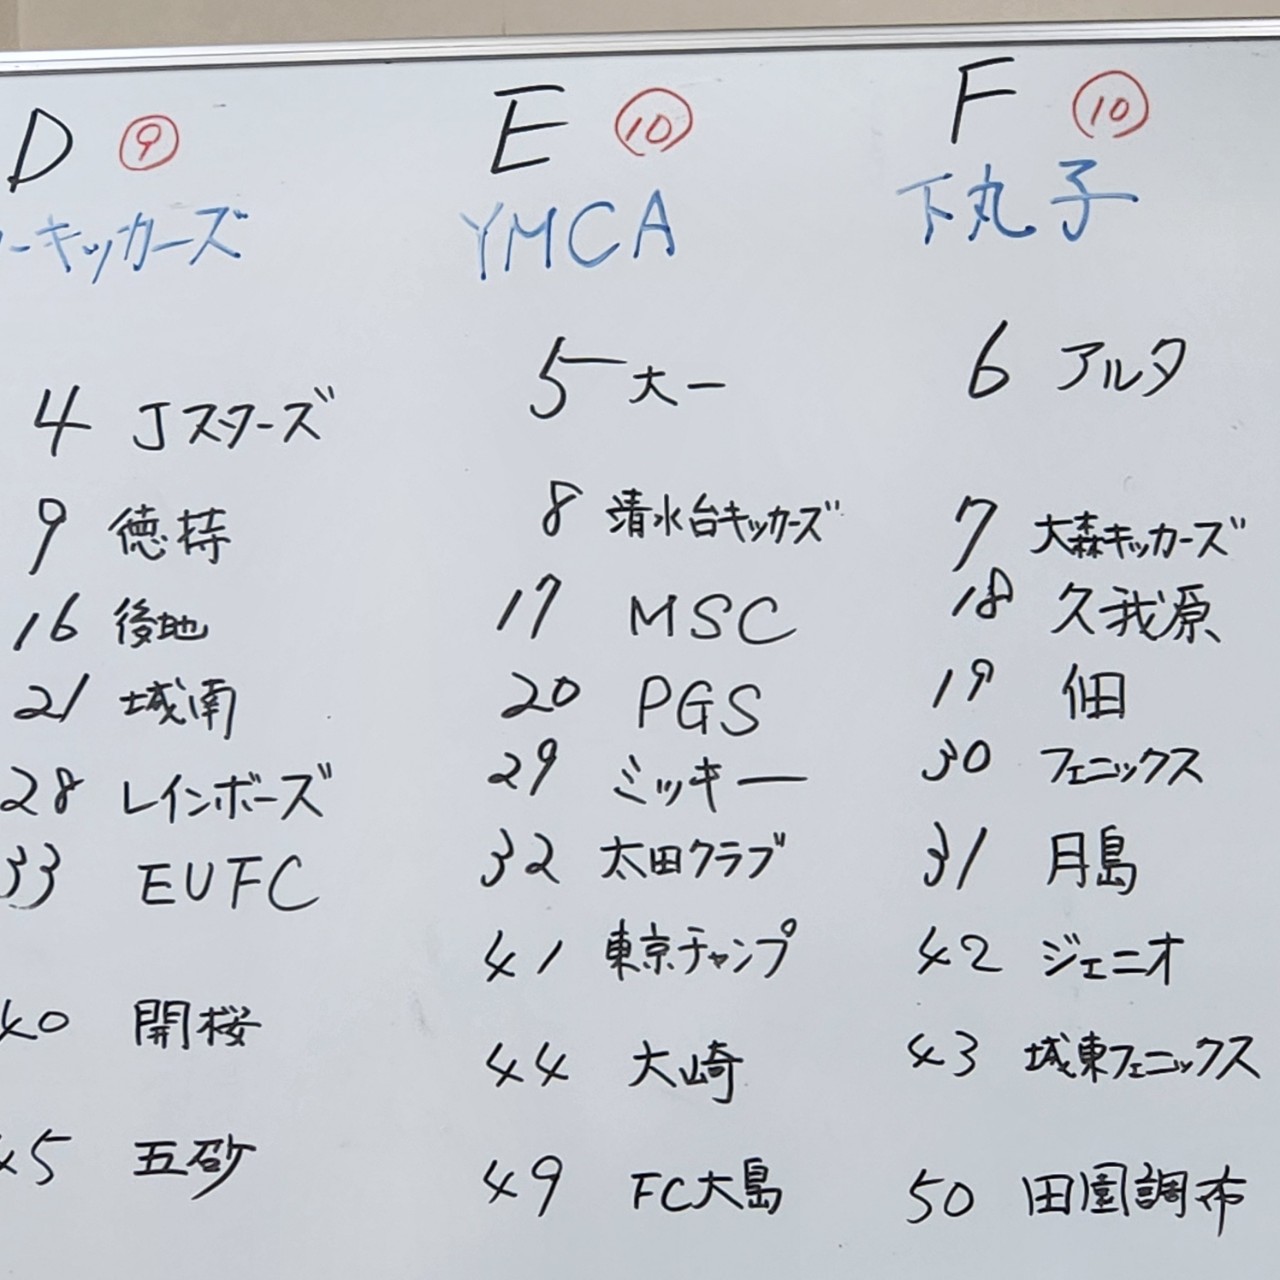 D ⑨
ーキッカーズ
4 Jスターズ
9 徳持
16 後地
21 城南
28 レインボーズ
33 EUFC
40 開桜
45 五砂
E ⑩
YMCA
5 大一
8 清水台キッカーズ
17 MSC
20 PGS
29 ミッキー
32 太田クラブ
41 東京チャンプ
44 大崎
49 FC大島
F ⑩
下丸子
6 アルタ
7 大森キッカーズ
18 久我原
19 佃
30 フェニックス
31 月島
42 ジェニオ
43 城東フェニックス
50 田園調布